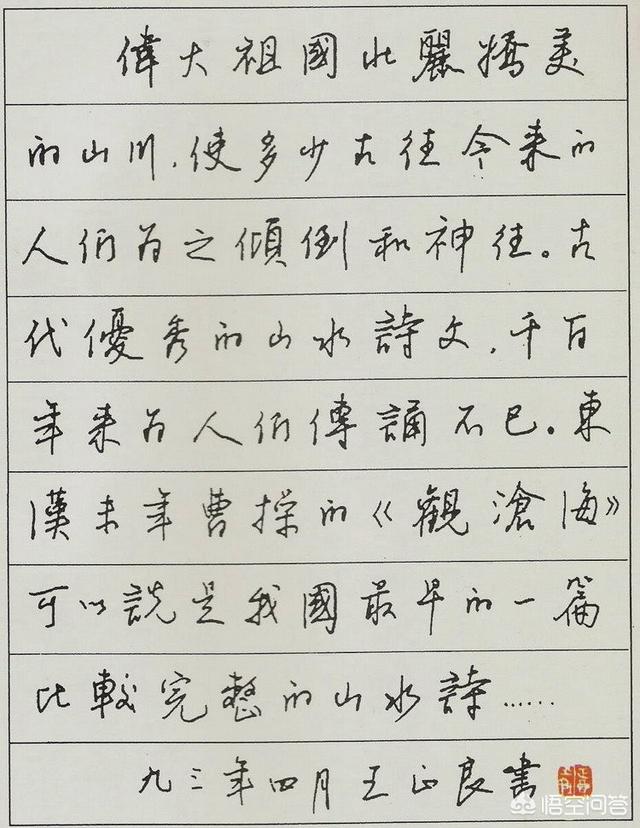 偉大祖國壯麗嬌美
的山川,使多少古往今来的
人们为之傾倒和神往。古
代優秀的山水詩文,千百
年来为人们傳誦不已。東
漢末年曹操的《觀滄海》
可以説是我國最早的一篇
比較完整的山水詩……
九三年四月王正良書
悟空问答